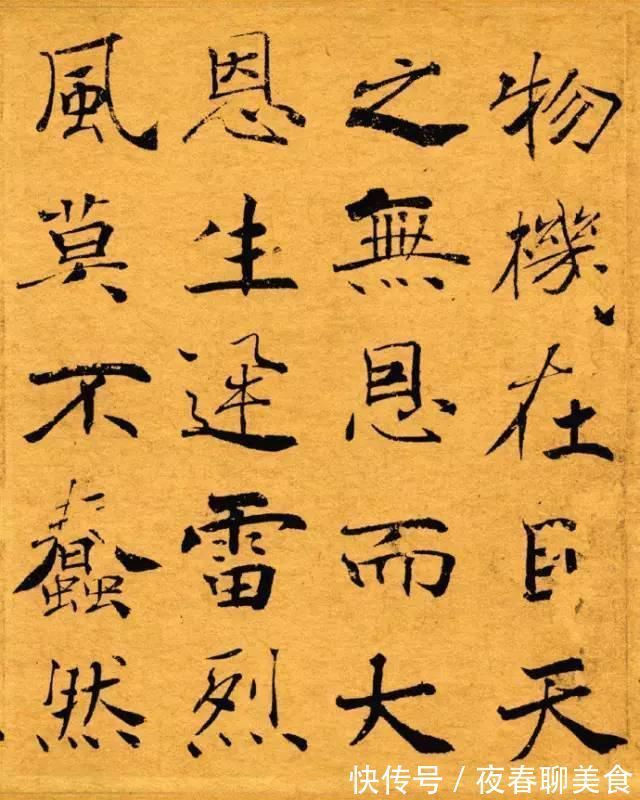 物機在目天
之無恩而大
恩生迅雷烈
風莫不蠢然
快传号 / 夜春聊美食